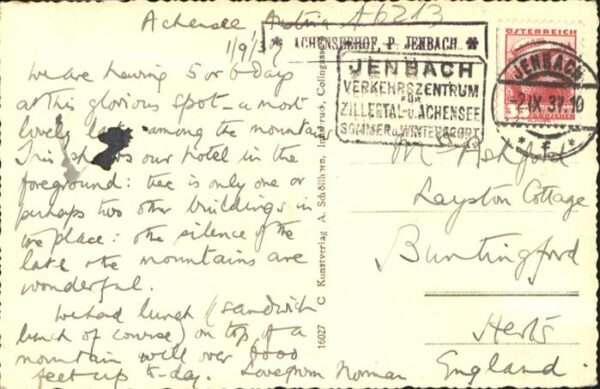 Achensee Austria A6213
ACHENSEEHOF, P. JENBACH
1/9/37
We are having 5 or 6 days
at this glorious spot - a most
lovely lake among the mountains
This shows our hotel in the
foreground: there is only one or
perhaps two other buildings in
the place: the silence of the
lake & the mountains are
wonderful.
We had lunch (sandwich
lunch of course) on top of a
mountain well over 6000
feet up to-day. Love from Norman
16027 C Kunstverlag A. Schöllhorn, Innsbruck, Colingasse
JENBACH
VERKEHRSZENTRUM
FÜR
ZILLERTAL-U. ACHENSEE
SOMMER U. WINTERSPORT
ÖSTERREICH
JENBACH
-2.IX.37.10
* f *
Ashford
Layston Cottage
Buntingford
Herts
England.